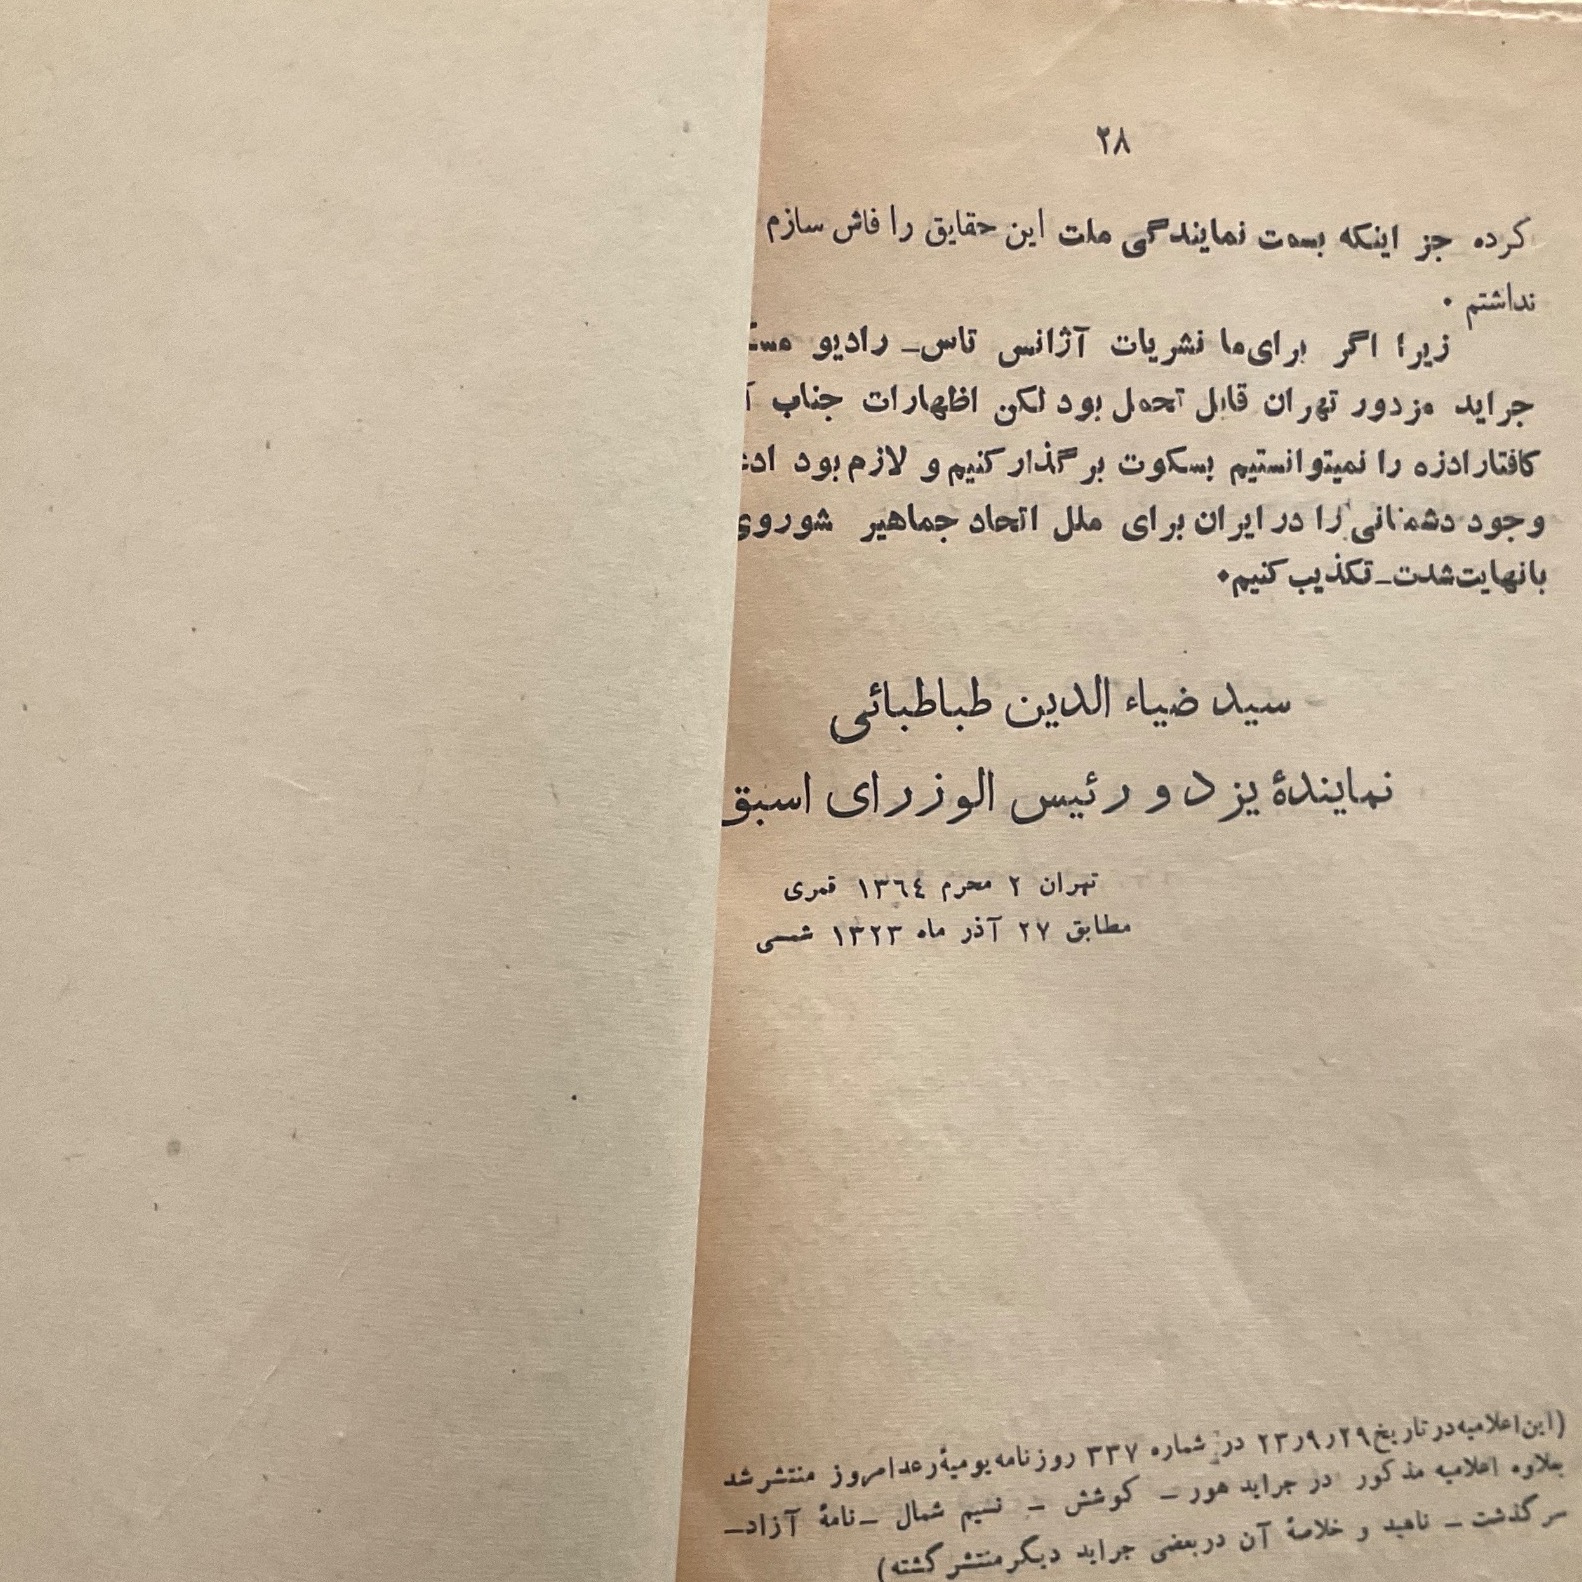 ۲۸
کرده جز اینکه بسمت نمایندگی ملت این حقایق را فاش سازم
نداشتم .
زیرا اگر برای‌ما نشریات آژانس تاس_ رادیو
جراید مزدور تهران قابل تحمل بود لکن اظهارات جناب
کافتارادزه را نمیتوانستیم بسکوت برگذار کنیم و لازم بود
وجود دشمنانی را در ایران برای ملل اتحاد جماهیر شوروی
بانهایت‌شدت_تکذیب کنیم.
سید ضیاء الدین طباطبائی
نمایندهٔ یزد و رئیس الوزرای اسبق
تهران ۲ محرم ۱۳٦٤ قمری
مطابق ۲۷ آذر ماه ۱۳۲۳ شمسی
(این‌اعلامیه در تاریخ ۲۹ر۹ر۲۳ در شماره ۳۳۷ روزنامه یومیهٔ رعدامروز منتشر شد
بعلاوه اعلامیه مذکور در جراید هور _ کوشش _ نسیم شمال _نامهٔ آزاد_
سرگذشت _ ناهید و خلاصهٔ آن در بعضی جراید دیگر منتشر گشته)